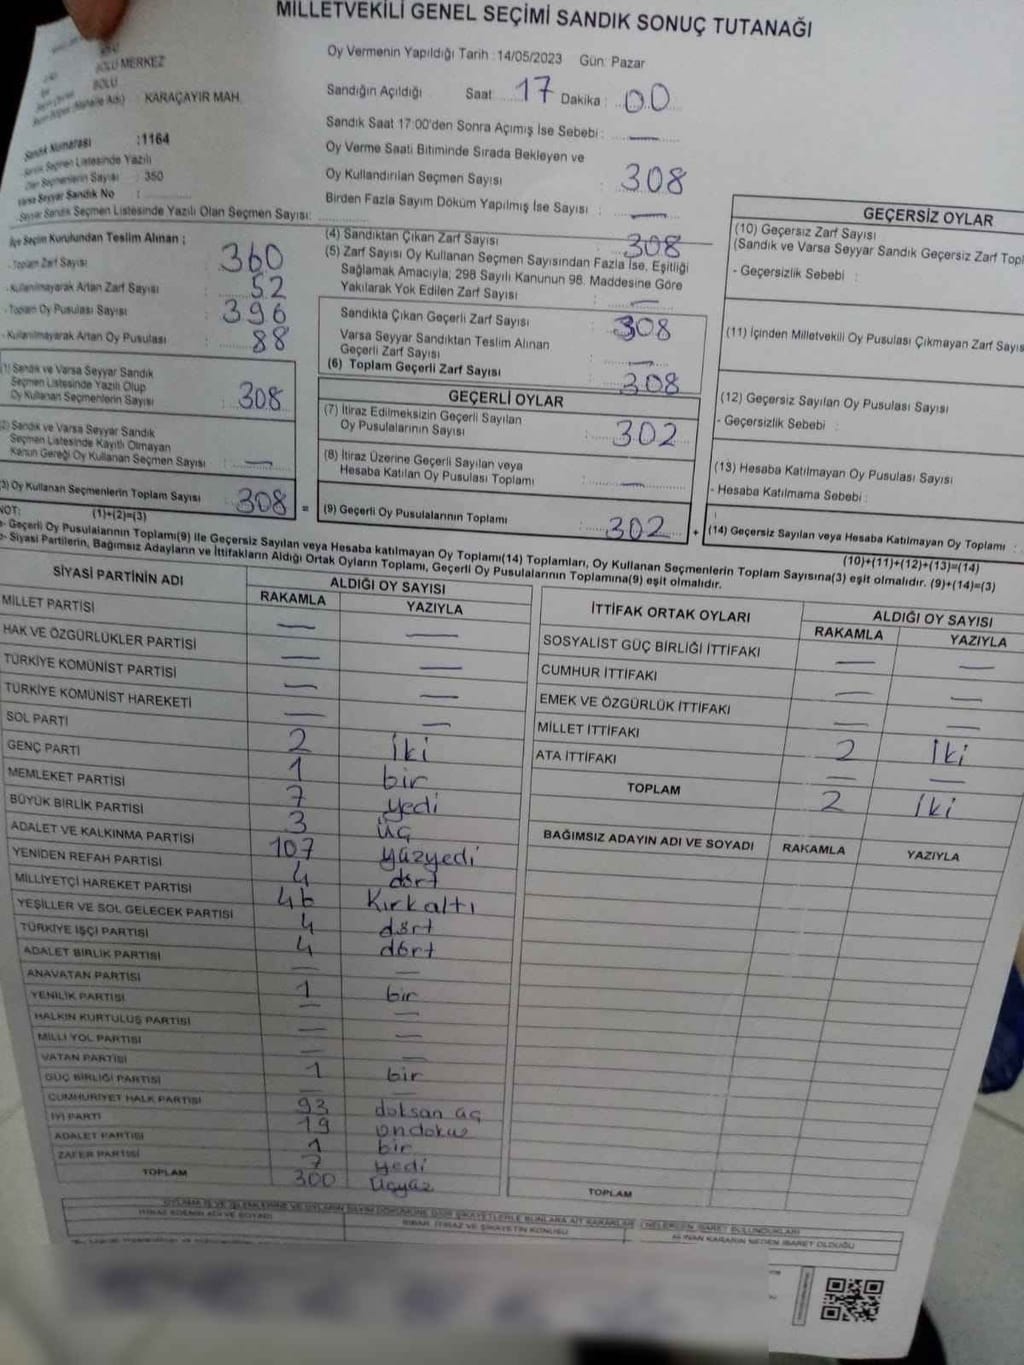 MİLLETVEKİLİ GENEL SEÇİMİ SANDIK SONUÇ TUTANAĞI
BOLU MERKEZ
BOLU
KARAÇAYIR MAH.
Sandık Numarası :1164
Sandık Seçmen Listesinde Yazılı
Olan Seçmenlerin Sayısı : 350
Varsa Seyyar Sandık No :
Seyyar Sandık Seçmen Listesinde Yazılı Olan Seçmen Sayısı:
Oy Vermenin Yapıldığı Tarih : 14/05/2023 Gün: Pazar
Sandığın Açıldığı Saat 17 Dakika : 00
Sandık Saat 17:00'den Sonra Açılmış İse Sebebi : —
Oy Verme Saati Bitiminde Sırada Bekleyen ve
Oy Kullandırılan Seçmen Sayısı : 308
Birden Fazla Sayım Döküm Yapılmış İse Sayısı : —
İlçe Seçim Kurulundan Teslim Alınan ;
- Toplam Zarf Sayısı : 360
- Kullanılmayarak Artan Zarf Sayısı : 52
- Toplam Oy Pusulası Sayısı : 396
- Kullanılmayarak Artan Oy Pusulası : 88
(1) Sandık ve Varsa Seyyar Sandık
Seçmen Listesinde Yazılı Olup
Oy Kullanan Seçmenlerin Sayısı : 308
(2) Sandık ve Varsa Seyyar Sandık
Seçmen Listesinde Kayıtlı Olmayan
Kanun Gereği Oy Kullanan Seçmen Sayısı : —
(3) Oy Kullanan Seçmenlerin Toplam Sayısı : 308 =
(4) Sandıktan Çıkan Zarf Sayısı : 308
(5) Zarf Sayısı Oy Kullanan Seçmen Sayısından Fazla İse, Eşitliği
Sağlamak Amacıyla; 298 Sayılı Kanunun 98. Maddesine Göre
Yakılarak Yok Edilen Zarf Sayısı : —
Sandıkta Çıkan Geçerli Zarf Sayısı : 308
Varsa Seyyar Sandıktan Teslim Alınan
Geçerli Zarf Sayısı : —
(6) Toplam Geçerli Zarf Sayısı : 308
GEÇERLİ OYLAR
(7) İtiraz Edilmeksizin Geçerli Sayılan
Oy Pusulalarının Sayısı : 302
(8) İtiraz Üzerine Geçerli Sayılan veya
Hesaba Katılan Oy Pusulası Toplamı : —
(9) Geçerli Oy Pusulalarının Toplamı : 302 +
GEÇERSİZ OYLAR
(10) Geçersiz Zarf Sayısı
(Sandık ve Varsa Seyyar Sandık Geçersiz Zarf
- Geçersizlik Sebebi :
(11) İçinden Milletvekili Oy Pusulası Çıkmayan Zarf
(12) Geçersiz Sayılan Oy Pusulası Sayısı
- Geçersizlik Sebebi :
(13) Hesaba Katılmayan Oy Pusulası Sayısı
- Hesaba Katılmama Sebebi :
(14) Geçersiz Sayılan veya Hesaba Katılmayan Oy Toplamı :
NOT: (1)+(2)=(3) (10)+(11)+(12)+(13)=(14)
a- Geçerli Oy Pusulalarının Toplamı(9) ile Geçersiz Sayılan veya Hesaba katılmayan Oy Toplamı(14) Toplamları, Oy Kullanan Seçmenlerin Toplam Sayısına(3) eşit olmalıdır. (9)+(14)=(3)
b- Siyasi Partilerin, Bağımsız Adayların ve İttifakların Aldığı Ortak Oyların Toplamı, Geçerli Oy Pusulalarının Toplamına(9) eşit olmalıdır.
SİYASİ PARTİNİN ADI ALDIĞI OY SAYISI
RAKAMLA YAZIYLA
MİLLET PARTİSİ — —
HAK VE ÖZGÜRLÜKLER PARTİSİ — —
TÜRKİYE KOMÜNİST PARTİSİ — —
TÜRKİYE KOMÜNİST HAREKETİ — —
SOL PARTİ 2 iki
GENÇ PARTİ 1 bir
MEMLEKET PARTİSİ 7 yedi
BÜYÜK BİRLİK PARTİSİ 3 üç
ADALET VE KALKINMA PARTİSİ 107 yüzyedi
YENİDEN REFAH PARTİSİ 4 dört
MİLLİYETÇİ HAREKET PARTİSİ 46 Kırkaltı
YEŞİLLER VE SOL GELECEK PARTİSİ 4 dört
TÜRKİYE İŞÇİ PARTİSİ 4 dört
ADALET BİRLİK PARTİSİ — —
ANAVATAN PARTİSİ 1 bir
YENİLİK PARTİSİ — —
HALKIN KURTULUŞ PARTİSİ — —
MİLLİ YOL PARTİSİ — —
VATAN PARTİSİ 1 bir
GÜÇ BİRLİĞİ PARTİSİ — —
CUMHURİYET HALK PARTİSİ 93 doksan üç
İYİ PARTİ 19 ondokuz
ADALET PARTİSİ 1 bir
ZAFER PARTİSİ 7 yedi
TOPLAM 300 üçyüz
İTTİFAK ORTAK OYLARI ALDIĞI OY SAYISI
RAKAMLA YAZIYLA
SOSYALİST GÜÇ BİRLİĞİ İTTİFAKI — —
CUMHUR İTTİFAKI — —
EMEK VE ÖZGÜRLÜK İTTİFAKI — —
MİLLET İTTİFAKI 2 iki
ATA İTTİFAKI — —
TOPLAM 2 iki
BAĞIMSIZ ADAYIN ADI VE SOYADI RAKAMLA YAZIYLA
TOPLAM
OYLAMA İŞ VE İŞLEMLERİNE VE OYLARIN SAYIM DÖKÜMÜNE DAİR ŞİKAYETLERLE BUNLARA AİT KARARLAR ( NELERDEN İBARET BULUNDUKLARI
İTİRAZ EDENİN ADI VE SOYADI
İTİRAZ VE ŞİKAYETİN KONUSU
ALINAN KARARIN NEDEN İBARET OLDUĞU